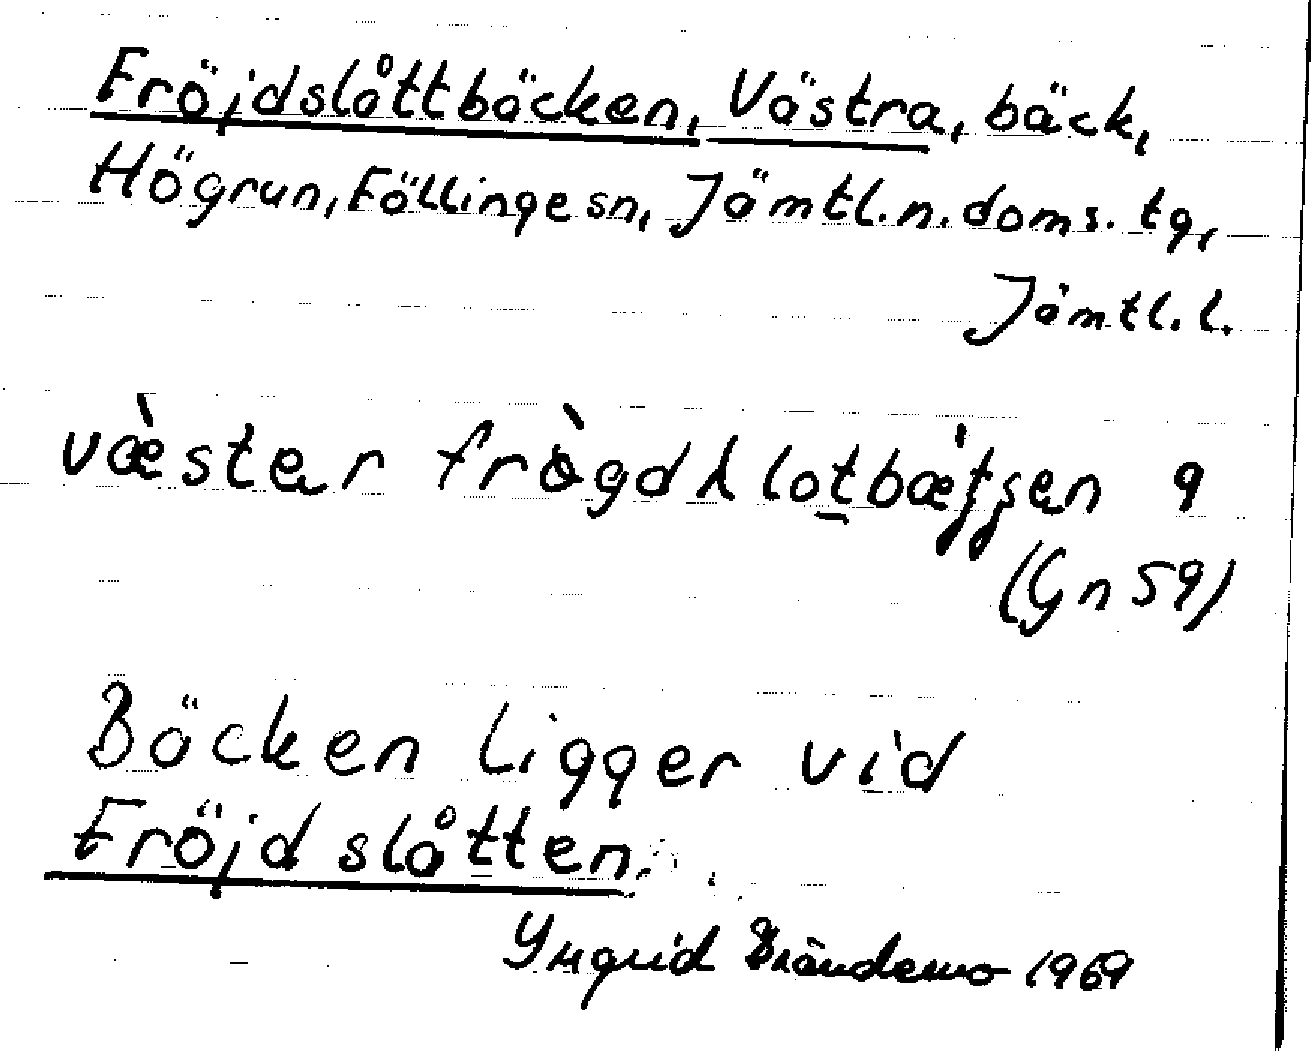 Fröjdslåttbäcken, Västra, bäck,
Högrun, Föllinge sn, Jämtl. n. doms. tg,
Jämtl. l.
Bäcken ligger vid
Fröjdslåtten.
Brändemo 1969
(Gn 59)